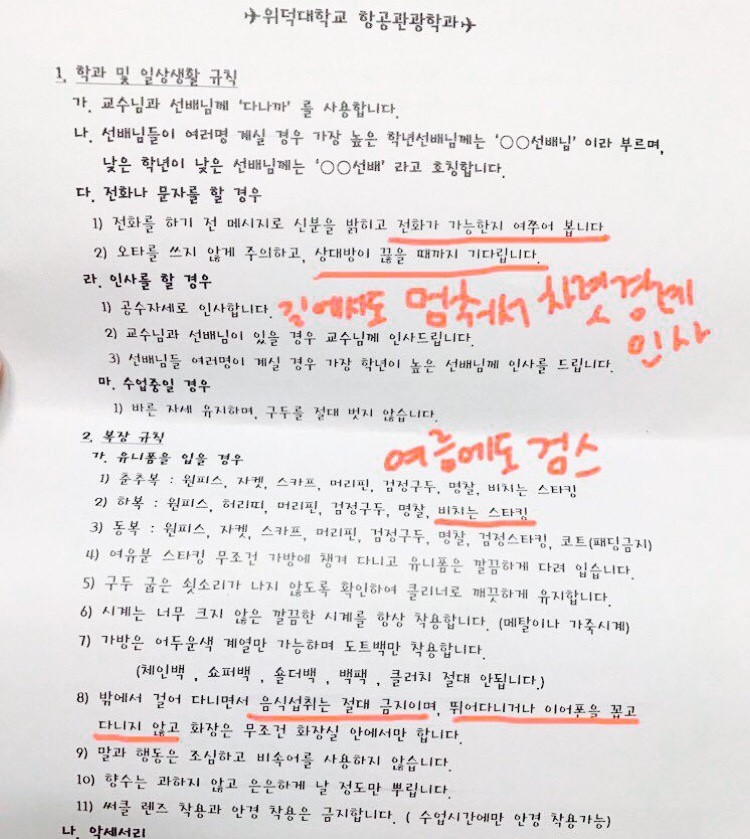 ✈위덕대학교 항공관광학과✈
1. 학과 및 일상생활 규칙
가. 교수님과 선배님께 '다나까' 를 사용합니다.
나. 선배님들이 여러명 계실 경우 가장 높은 학년선배님께는 '○○선배님' 이라 부르며,
낮은 학년이 낮은 선배님께는 '○○선배' 라고 호칭합니다.
다. 전화나 문자를 할 경우
1) 전화를 하기 전 메시지로 신분을 밝히고 전화가 가능한지 여쭈어 봅니다
2) 오타를 쓰지 않게 주의하고, 상대방이 끊을 때까지 기다립니다.
라. 인사를 할 경우
1) 공수자세로 인사합니다. 길에서도 멈춰서 차렷경례
인사
2) 교수님과 선배님이 있을 경우 교수님께 인사드립니다.
3) 선배님들 여러명이 계실 경우 가장 학년이 높은 선배님께 인사를 드립니다.
마. 수업중일 경우
1) 바른 자세 유지하며, 구두를 절대 벗지 않습니다.
2. 복장 규칙
여름에도 검스
가. 유니폼을 입을 경우
1) 춘추복 : 원피스, 자켓, 스카프, 머리핀, 검정구두, 명찰, 비치는 스타킹
2) 하복 : 원피스, 허리띠, 머리핀, 검정구두, 명찰, 비치는 스타킹
3) 동복 : 원피스, 자켓, 스카프, 머리핀, 검정구두, 명찰, 검정스타킹, 코트(패딩금지)
4) 여유분 스타킹 무조건 가방에 챙겨 다니고 유니폼은 깔끔하게 다려 입습니다.
5) 구두 굽은 쇳소리가 나지 않도록 확인하여 클리너로 깨끗하게 유지합니다.
6) 시계는 너무 크지 않은 깔끔한 시계를 항상 착용합니다. (메탈이나 가죽시계)
7) 가방은 어두운색 계열만 가능하며 도트백만 착용합니다.
(체인백 , 쇼퍼백 , 숄더백 , 백팩 , 클러치 절대 안됩니다.)
8) 밖에서 걸어 다니면서 음식섭취는 절대 금지이며, 뛰어다니거나 이어폰을 꼽고
다니지 않고 화장은 무조건 화장실 안에서만 합니다.
9) 말과 행동은 조심하고 비속어를 사용하지 않습니다.
10) 향수는 과하지 않고 은은하게 날 정도만 뿌립니다.
11) 써클 렌즈 착용과 안경 착용은 금지합니다. ( 수업시간에만 안경 착용가능)
나. 악세서리